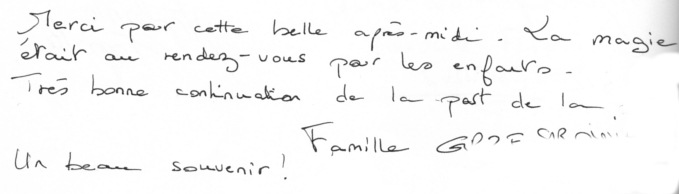 Merci pour cette belle après-midi. La magie
était au rendez-vous pour les enfants.
Très bonne continuation de la part de la
Famille
Un beau souvenir!